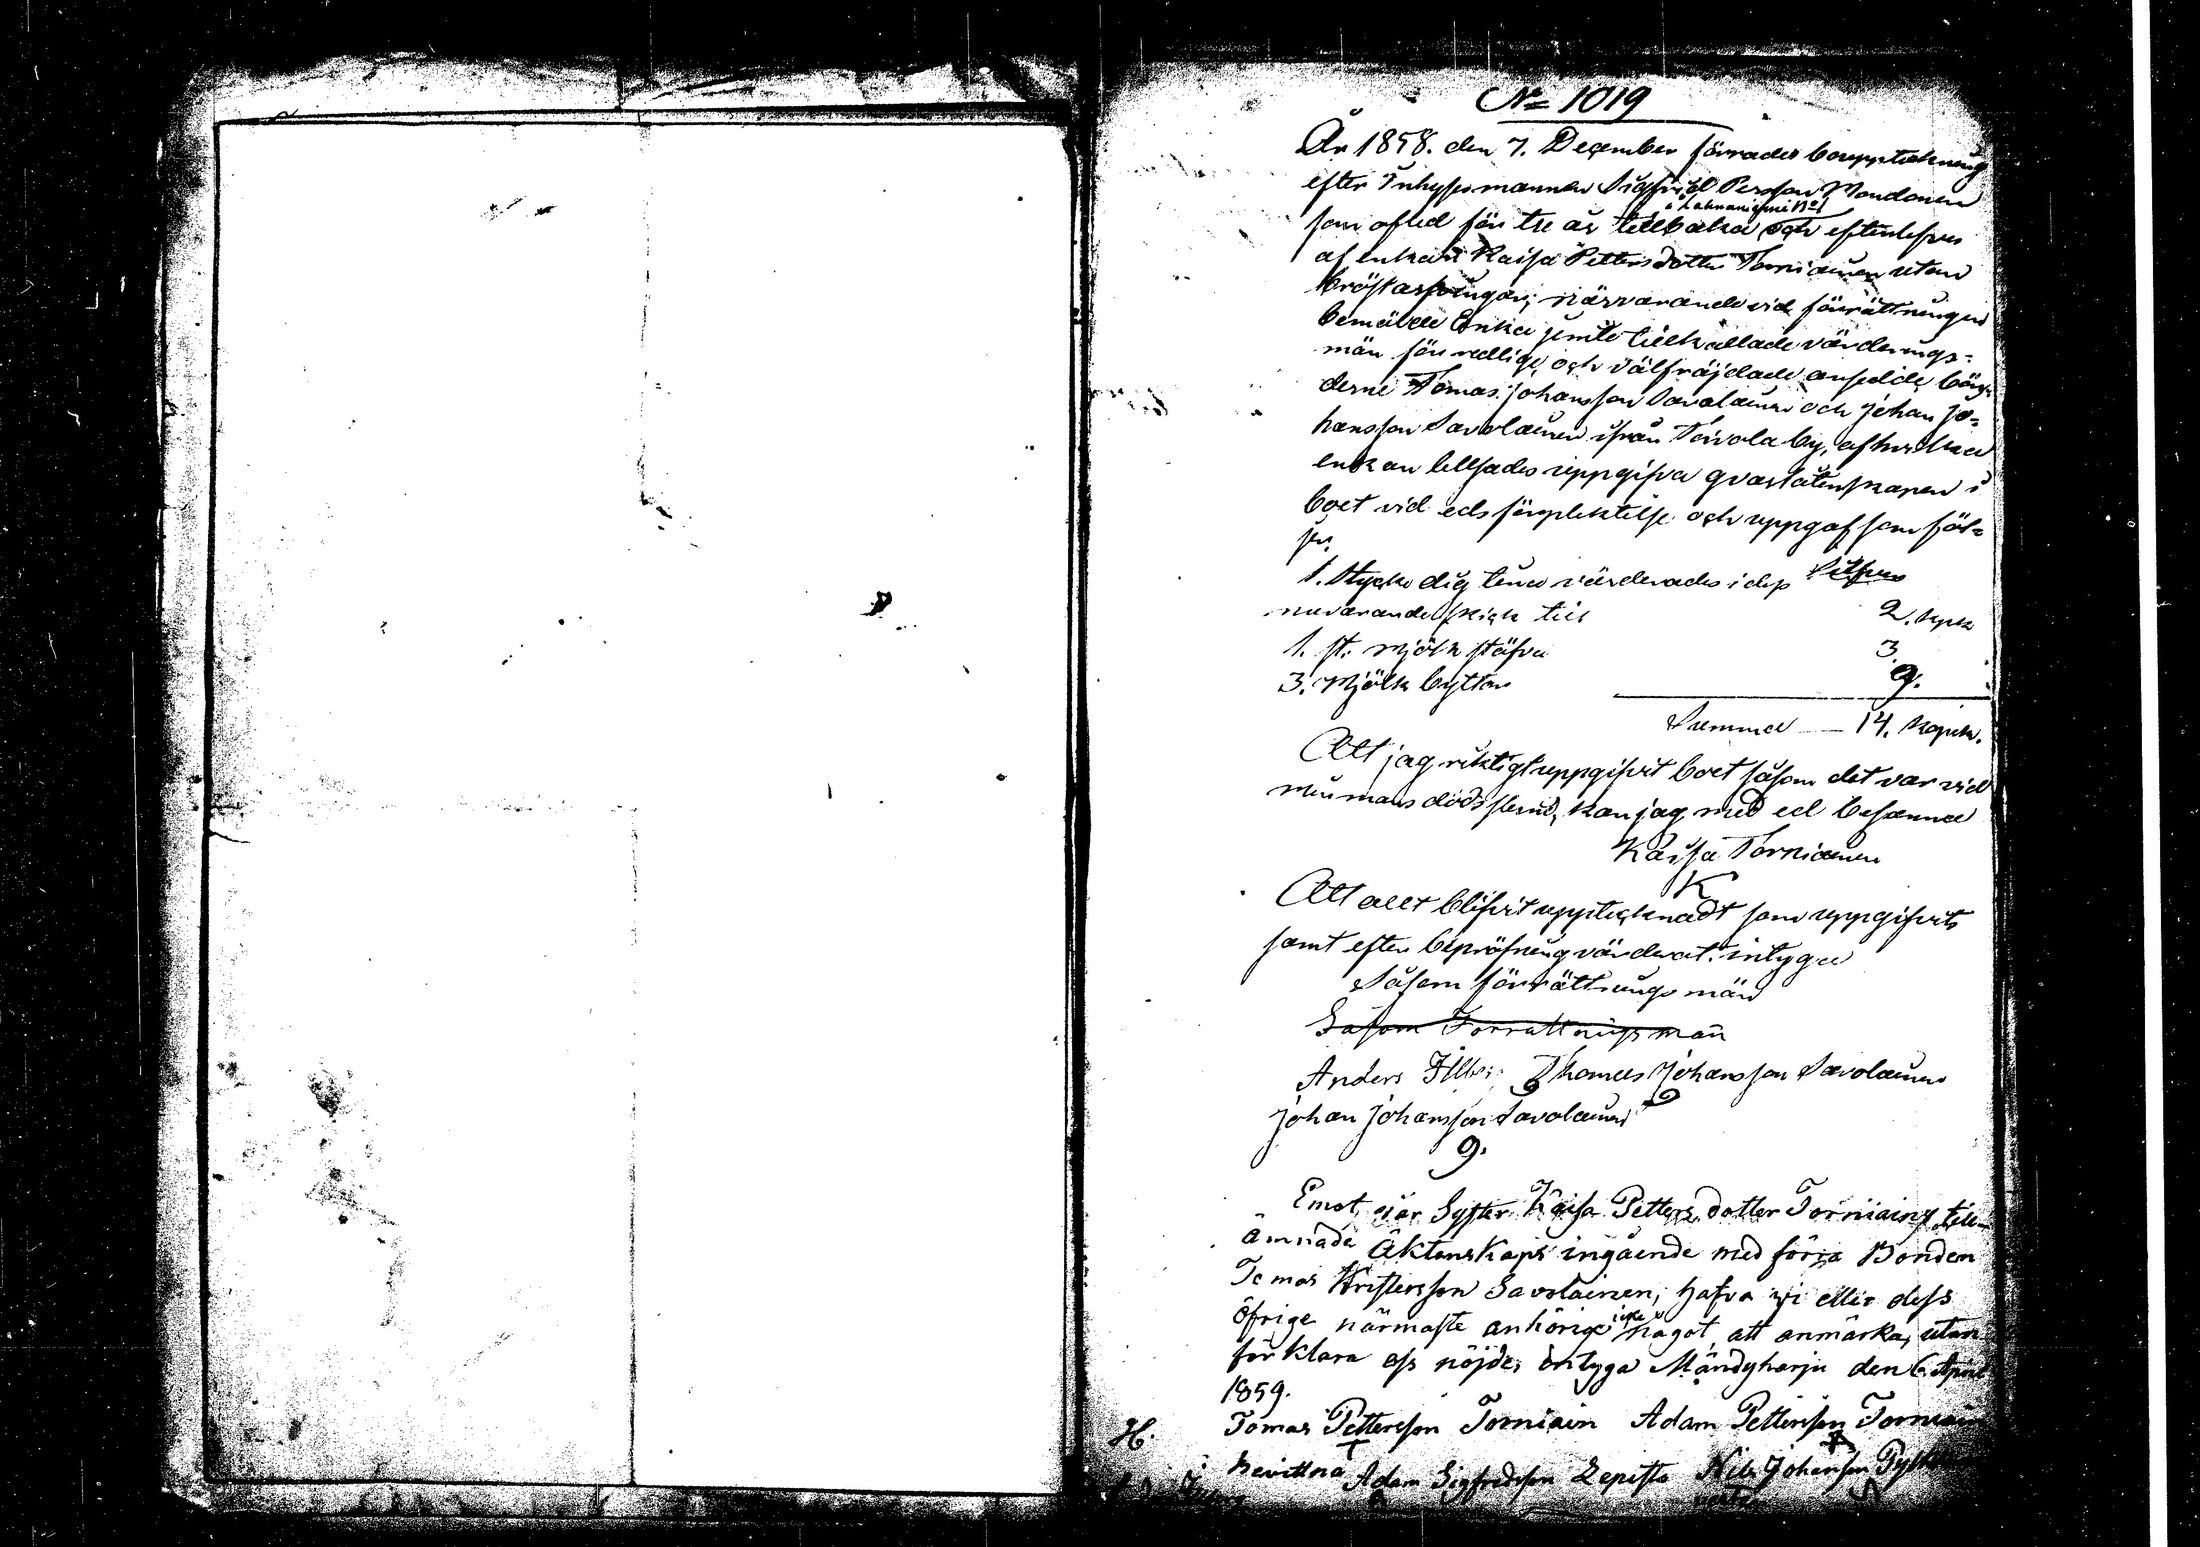 No 1019
År 1858. den 7. December förrades bouppteckning
efter Inhysesmannen Sigfrid Persson Mondonen
å Lahnaniemi No1
som afled för tre år tillbaka och efterlefves
af enkan Kaisa Pettersdotter Torniainen utan
bröstarfvingar; närvarande vid förrättningen
bemälde Enka jemte tillkallade värderings-
män för redlige och välfräjdade ansedde bön-
derne Tomas Johansson Savolainen och Johan Jo-
hansson Savolainen ifrån Toivola by, af hvilka
enkan tillsades uppgifva qvarlåtenskapen i
boet vid eds förpliktelse och uppgaf som föl-
jer.
1. Stycke dig tunn värderades i dess Silfver
nuvarande skick till 2. kopek
1. st. mjölk stäfva 3
3. Mjölk byttor 9.
Summa — 14. kopek.
Att jag riktigt uppgifvit boet såsom det var vid
min mans dödsstund, kan jag med ed besanna
Kaisa Torniainen
K
Att allt blifvit upptecknadt som uppgifvits
samt efter bepröfning värderat. intyga
Såsom förrättnings män
Såsom Förrättnings män
Anders Thomas Johansson Savolainen
Johan Johansson Savolainen
9.
Emot vår Syster Kaisa Petters dotter Torniainy till-
ämnade Äktenskaps ingående med förra Bonden
Tomas Kristersson Savolainen, hafva vi eller dess
öfrige närmaste anhörige icke något att anmärka, utan
för klara oss nöjde, intyga Mändyharju den 6 April
1859.
Tomas Pettersson Torniain Adam Pettersson Torniain
bevittna Adam Sigfredsson Lepistö Nils Johansson